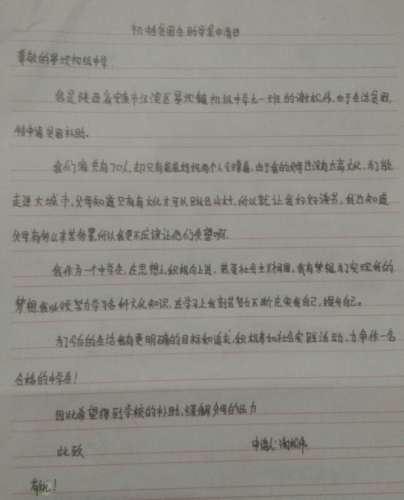 初中贫困生助学金申请书
尊敬的枣坝初级中学:
我是陕西省安康市汉滨区枣坝镇初级中学九一班的谢松伟,由于生活贫困,
特申请贫困补助。
我们家共有7口人,却只有爸爸妈妈两个人支撑着,由于我的父母也没有太高文化,为了能
走进大城市,父母知道只有有文化才可以跳出山村,所以就让我好好读书,我也知道
父母有多么辛苦劳累,所以我更不应该让他们失望啊。
我作为一个中学生,在思想上积极向上进,热爱社会主义祖国,我有梦想,为了实现我的
梦想,我必须努力学习各科文化知识,在学习上我刻苦努力不断充实我自己,提升自己。
为了今后的生活我有更明确的目标和追求,积极参加社会实践活动,力争作一名
合格的中学生!
因此希望得到学校的补助,缓解父母的压力
此致 申请人:谢松伟
敬礼!